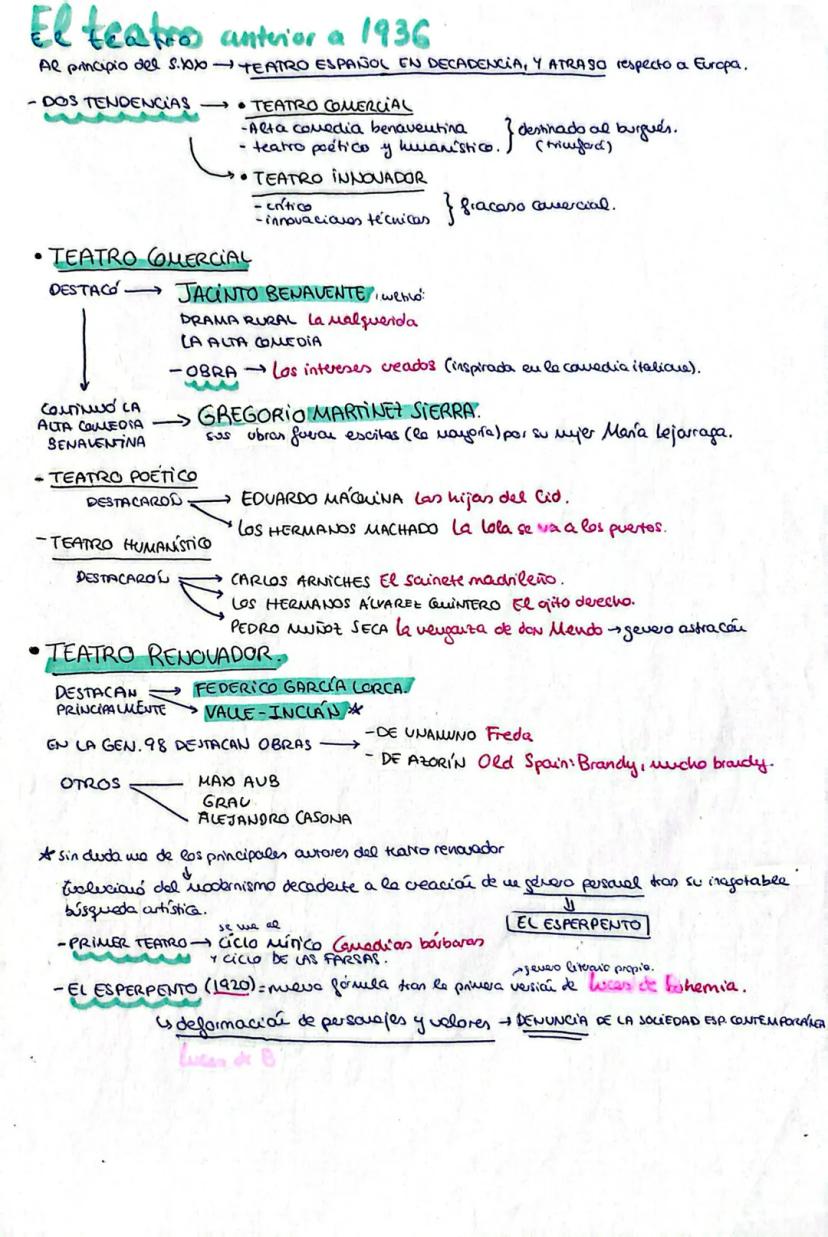 El teatro anterior a 1936
Al principio del S.XX → TEATRO ESPAÑOL EN DECADENCIA, Y ATRASO respecto a Europa.
- DOS TENDENCIAS → • TEATRO COMERCIAL
- Alta comedia benaventina } destinado al burgués.
- teatro poético y humanístico. (triunfará)
• TEATRO INNOVADOR
- crítico } fracaso comercial.
- innovaciones técnicas
• TEATRO COMERCIAL
DESTACÓ → JACINTO BENAVENTE,
DRAMA RURAL La malquerida
LA ALTA COMEDIA
- OBRA → Los intereses creados (inspirada en la comedia italiana).
CONTINUÓ LA
ALTA COMEDIA → GREGORIO MARTÍNEZ SIERRA.
BENAVENTINA sus obras fueron escritas (la mayoría) por su mujer María Lejarraga.
- TEATRO POÉTICO
DESTACARON → EDUARDO MÁQUINA Las hijas del Cid.
LOS HERMANOS MACHADO La Lola se va a los puertos.
- TEATRO HUMANÍSTICO
DESTACARON → CARLOS ARNICHES El sainete madrileño.
LOS HERMANOS ÁLVAREZ QUINTERO El ojito derecho.
PEDRO MUÑOZ SECA La venganza de don Mendo → genero astracán
• TEATRO RENOVADOR.
DESTACAN → FEDERICO GARCÍA LORCA.
PRINCIPALMENTE → VALLE-INCLÁN ★
EN LA GEN. 98 DESTACAN OBRAS → - DE UNAMUNO Freda
- DE AZORÍN Old Spain: Brandy, mucho brandy.
OTROS MAX AUB
GRAU
ALEJANDRO CASONA
★ Sin duda uno de los principales autores del teatro renovador
↓
Evolucionó del modernismo decadente a la creación de un género personal tras su inagotable
búsqueda artística.
⇓
EL ESPERPENTO
se une al
- PRIMER TEATRO → CICLO MÍTICO Comedias bárbaras
Y CICLO DE LAS FARSAS.
→ genero literario propio.
- EL ESPERPENTO (1920) = nueva fórmula tras la primera versión de Luces de Bohemia.
↳ deformación de personajes y valores → DENUNCIA DE LA SOCIEDAD ESP. CONTEMPORÁNEA
Luces de B